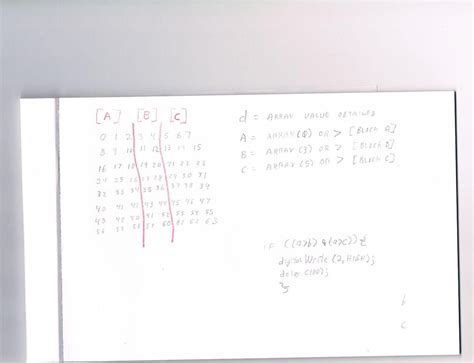 [A] [B] [C]
0 1 2 3 4 5 6 7
8 9 10 11 12 13 14 15
16 17 18 19 20 21 22 23
24 25 26 27 28 29 30 31
32 33 34 35 36 37 38 39
40 41 42 43 44 45 46 47
48 49 50 51 52 53 54 55
56 57 58 59 60 61 62 63
d = ARRAY VALUE OBTAINED
A = ARRAY(0) OR > [BLOCK A]
B = ARRAY(3) OR > [BLOCK B]
C = ARRAY(5) OR > [BLOCK C]
if ((a>b) &(a>c)) {
digitalWrite(2,HIGH);
b
c